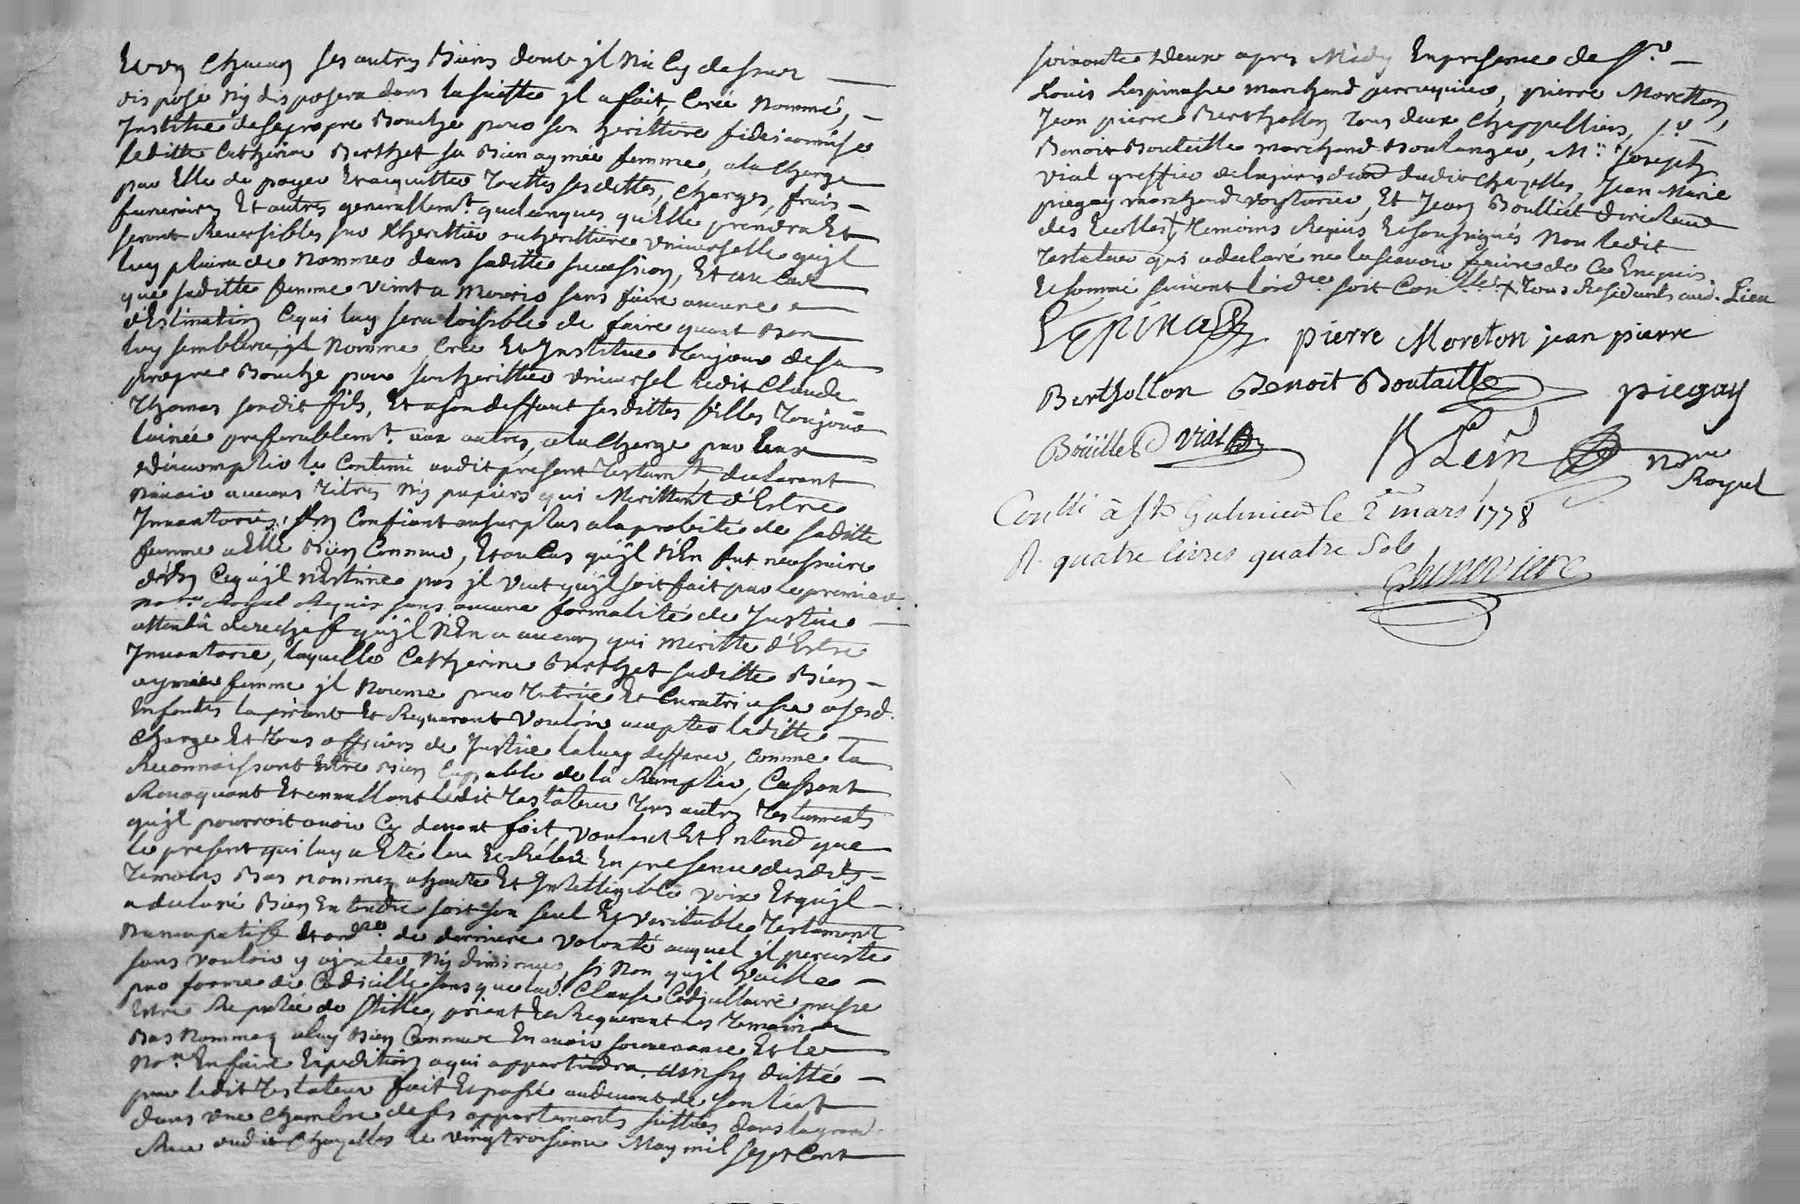 Et en chacun ses autres Biens dont jl n'a Cy dessus
disposé Ny disposera dans la suitte jl a fait, Créé Nommé,
Jnstitué de sa propre Bouche pour son heritiere fideicommise
laditte Catherine Berthet sa Bien aymée femme, a la Charge
par Elle de payer Et acquitter Touttes ses dettes, Charges, frais
funeraires Et autres generallemt. quelconques qu'Elle prendra Et
seront Reversibles sur l'heritier ou heritiere Universelle qu'jl
luy plaira de Nommer dans saditte succession, Et au Cas
que saditte femme vint a Mourir sans faire aucune
d'Estination Ce qui luy sera loisible de faire quant Bon
luy semblera, jl Nomme, Crée Et Jnstitue Toujours de sa
propre Bouche pour son heritier Universel ledit Claude
Thomas sondit fils, Et a son deffaut ses dittes filles Toujours
lainée preferablemt. aux autres, a la Charge par Eux
d'accomplir le Contenu audit present Testamt. declarant
N'avoir aucuns Titres Ny papiers qui Merittent d'Estre
Jnventoriés, s'En Confiant au surplus a la probité de saditte
femme a Elle Bien Connue, Et au Cas qu'jl s'En fut necessaire
d'En Ce qu'jl n'Estime pas jl veut qu'jl soit fait par le premier
No.re Royal Requis sans aucune formalité de Justice
attendu derechef qu'jl N'En a aucun qui Meritte d'Estre
Jnventorié, laquelle Catherine Berthet saditte Bien
aymée femme jl Nomme pour Tutrice Et Curatrice a sesd.
Enfants la priant Et Requerant vouloir accepter laditte
Charge Et Tous officiers de Justice la luy defferer, Comme la
Reconnaissant Estre Bien Capable de la Remplir, Cassant
Revoquant Et annullant ledit Testateur Tous autres Testaments
qu'jl pourroit avoir Cy devant fait, voulant Et Entend que
le present qui luy a Eté leu Et Relu En presence desdits
Temoins Bas nommez a haute Et Jntelligible voix Et qu'jl
a declaré Bien Entendre soit son seul Et veritable Testament
Nuncupatif Et ord.re de derniere volonté auquel jl percistte
sans vouloir y ajouter Ny diminuer, si Non qu'jl vaille
par forme de Codicille sans que lad. Clause Codicillaire puisse
Estre Reputée de stille, priant Et Requerant les Temoins
Bas Nommez a luy Bien Connus En avoir souvenance Et le
No.re En faire Expedition a qui appartiendra. ainsy dicté
par ledit Testateur fait Et passé audevant de son lict
dans une Chambre de ses appartements sittués dans la grand
Rue dudit Chazelles le vingt troisieme May mil sept Cent
soixante &deux apres Midy En presence de Sr.
Louis Lespinasse marchand perruquier, pierre Moretton,
Jean pierre Berthollon Tous deux Chappelliers, Sr.
Benoit Boutaille marchand Boulanger, Me. Joseph
vial greffier de la jurisd.on dudit Chazelles, Jean Marie
piegay marchand voyturier, Et Jean Boulliet directeur
des Ecolles + Temoins Requis Et soussignés Non ledit
Testateur qui a declaré ne le sçavoir faire de Ce Enquis
Et sommé suivant l'ord.ce soit Con.llé. + Tous Residents aud. Lieu
Lespinasse pierre Moreton jean pierre
Berthollon Benoit Boutaille piegay
Boüillet vial
no.re Royal
Con.llé à St. Galmier le 2e mars 1778
R. quatre livres quatre Sols
Chenevriere